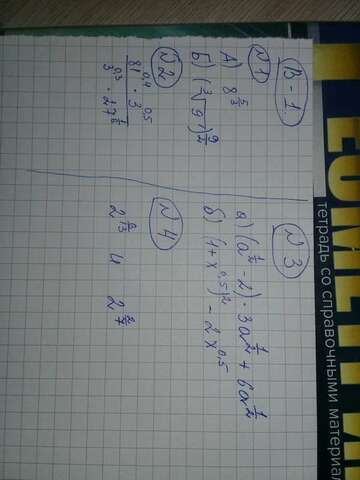 В-1.
№1
А) 8^{5/3}
Б) (∛9)^{9/2}
№2
\frac{81^{0,4} · 3^{0,5}}{3^{0,3} · 27^{1/6}}
№3
а) (a^{1/2} - 2) · 3a^{1/2} + 6a^{1/2}
б) (1+x^{0,5})^2 - 2x^{0,5}
№4
2^{6/13} 4 2^{2/7}
тетрадь со справочными материал